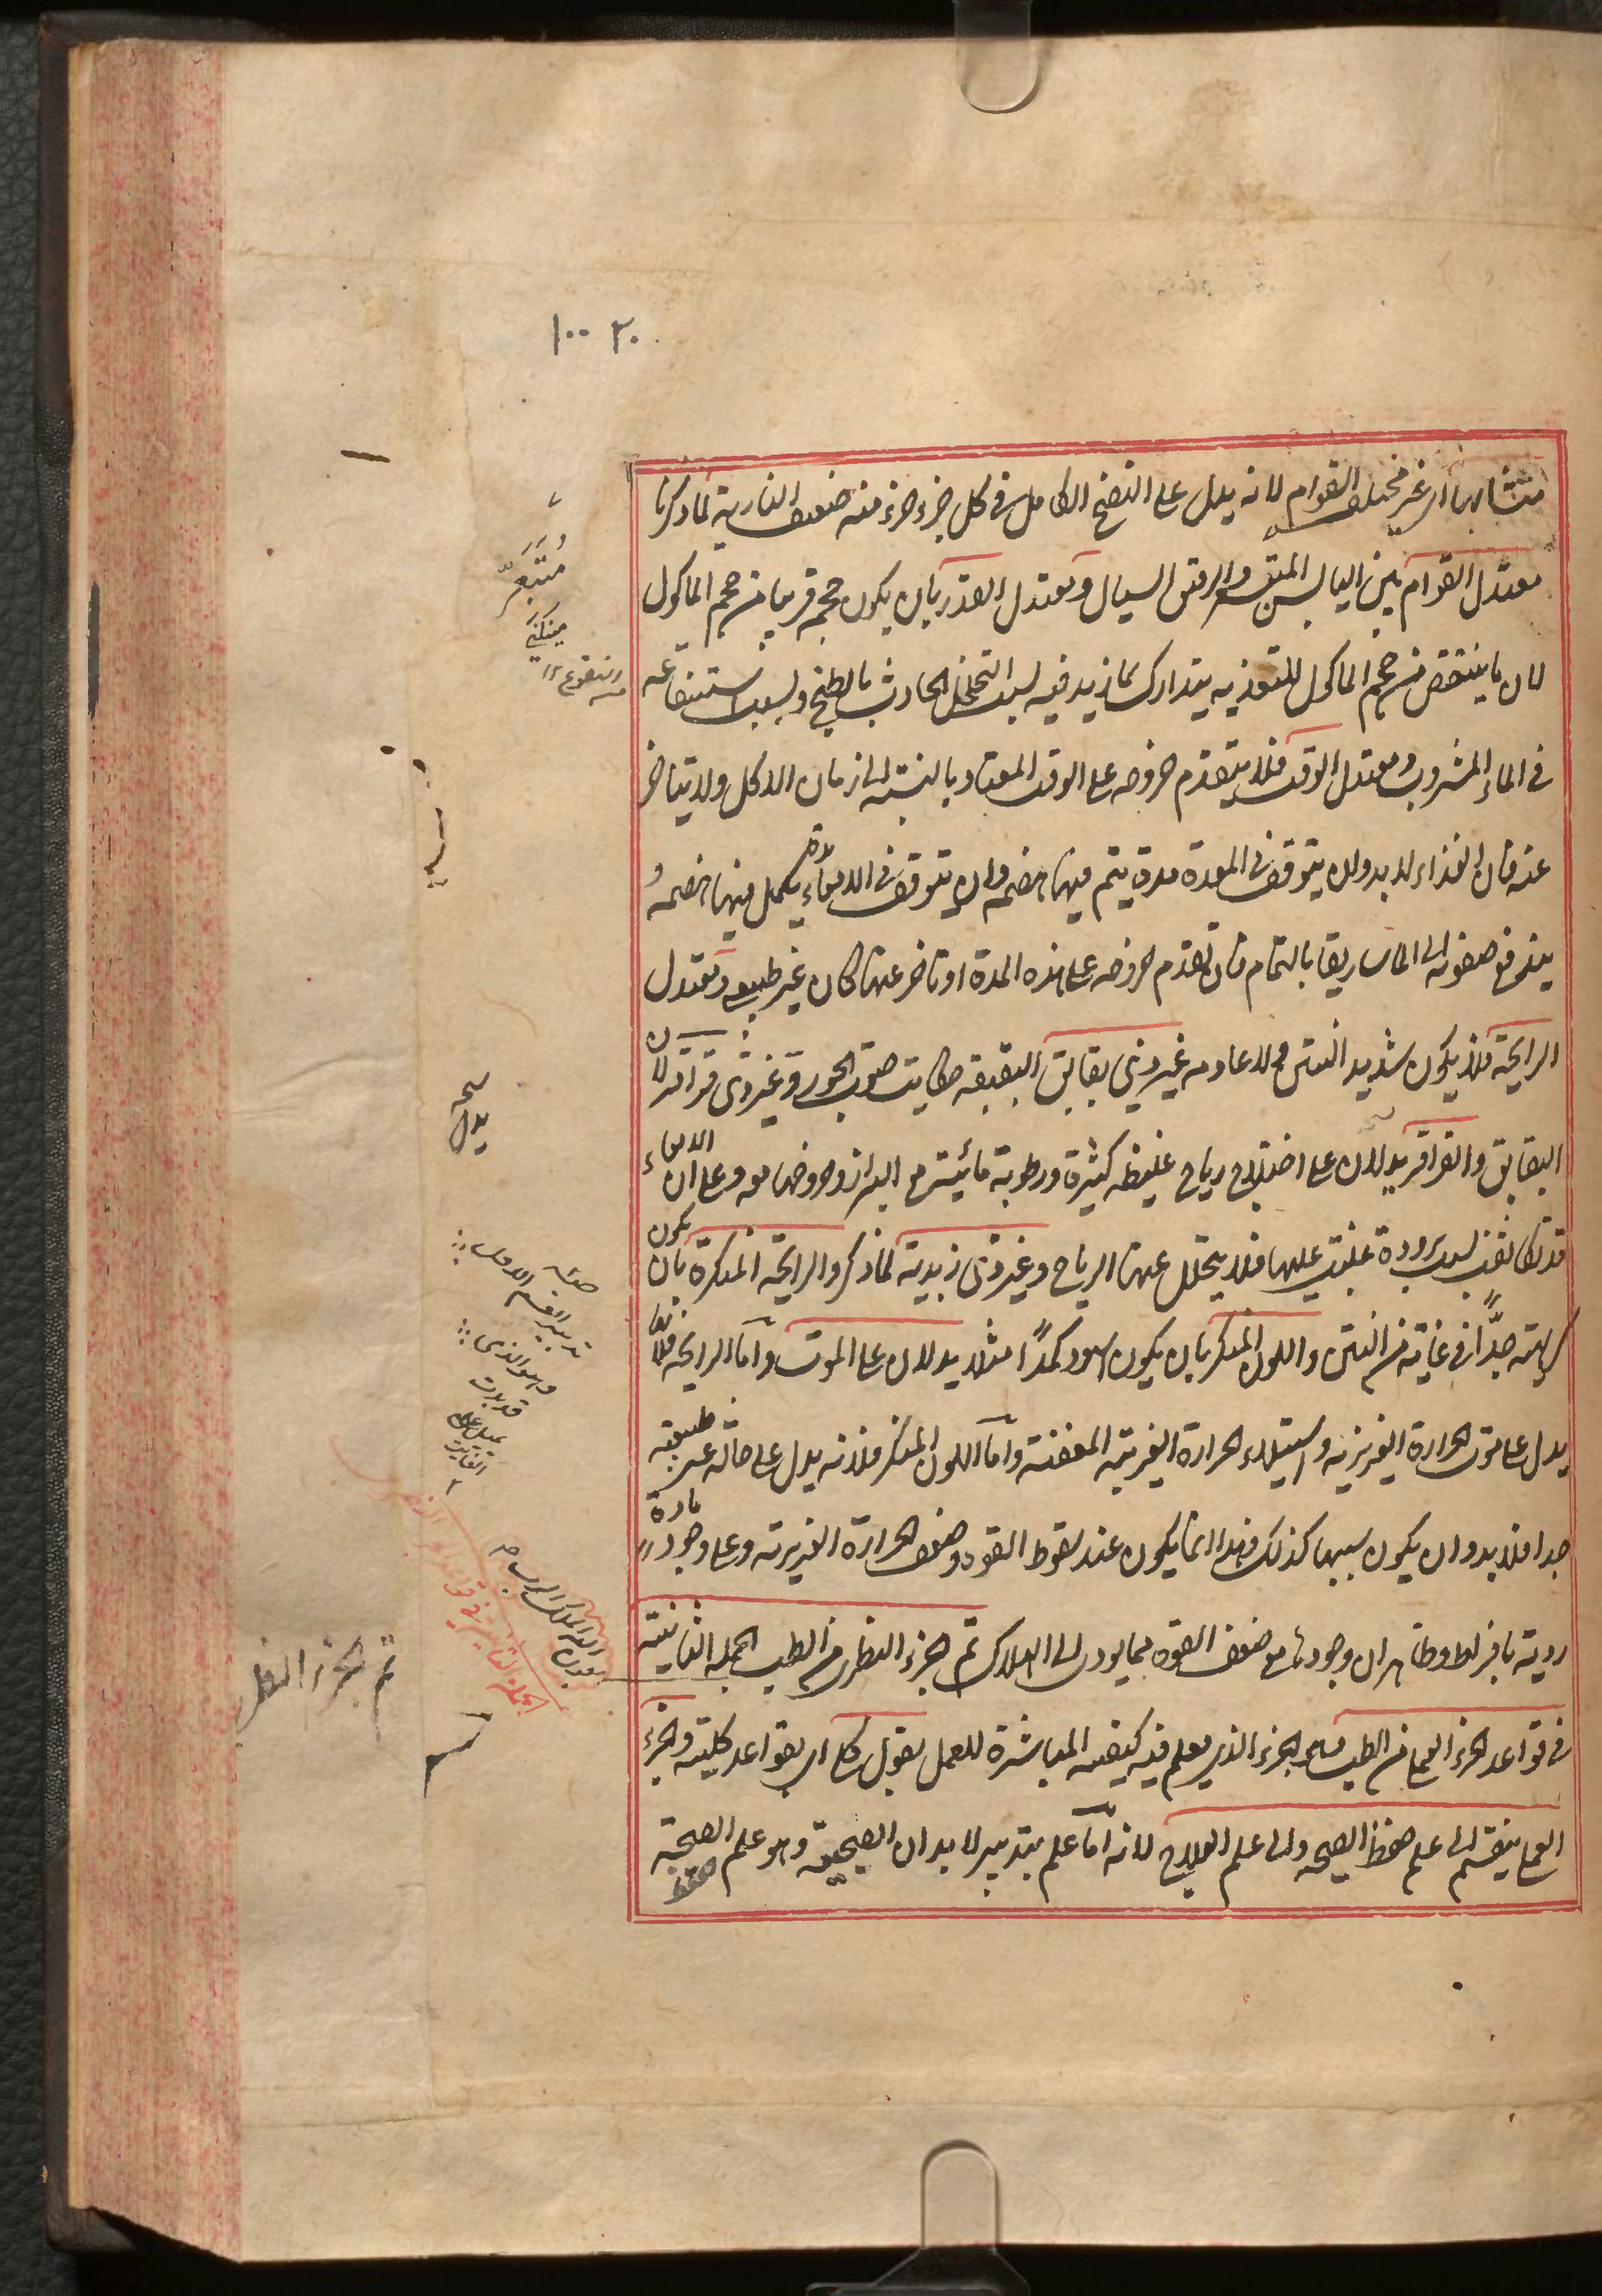 ١٠٠ ٢٠
متشابها اى غير مختلف القوام لانه يدل على النضج الكامل فى كل جزء جزء منه ضعيف النارية لما ذكرنا
معتدل القوام بين اليابس المتقر والرقيق السيال ومعتدل القدر بان يكون حجمه قريبا من حجم الماكول
لان ما ينتقص من حجم الماكول للتغذيه يتدارك بما زيد فيه لسبب التخلخل الحادث بالطبخ وبسبب استنقاعه
فى الماء المشروب ومعتدل الوقت فلا يتقدم خروجه على الوقت المعتاد بالنسبة الى زمان الاكل ولا يتاخر
عنه فان الغذاء لا بد وان يتوقف فى المعدة مدة يتم فيها هضمه وان يتوقف فى الامعاء مدة يكمل فيها هضمه و
يندفع صفوته الى الماساريقا بالتمام فان تقدم خروجه على هذه المدة او تاخر عنها كان غير طبيعى ومعتدل
الرايحة فلا يكون شديد النتن ولا عادمه غير ذى بقابق البقبقه حكايت صوت الجوزة وغير ذى قراقر لان
البقابق والقراقر يدلان على اختلاط رياح غليظه كثيرة ورطوبة مائية مع البراز وخروجها معه وعلى ان الامعاء
قد تكاثفت لسبب برودة غلبت عليها فلا يتحلل عنها الرياح وغير ذى زبدية لما ذكر والرايحة المنكرة بان يكون
كريهته جدًا فى غاية من النتن واللون المنكر بان يكون اسود كمدًا مثلا يدلان على الموت واما الرايحه فلانها
يدل على موت الحرارة الغريزيه واستيلاء الحرارة الغريبة المعفنة واما اللون المنكر فلانه يدل على حالة غير طبيعيه
جدا فلا بد وان يكون سببها كذلك وهذا انما يكون عند سقوط القوة وضعف الحرارة الغريزية وعلى وجود مادة
رديه بافراط وظاهر ان وجودها مع ضعف القوه مما يودى الى الهلاك تم الجزء النظرى من الطب الجمله الثانية
فى قواعد الجزء العملى من الطب وهو الجزء الذى يعلم فيه كيفيه المباشرة للعمل بقول كلى اى بقواعد كلية والجزء
العملى ينقسم الى علم حفظ الصحه والى علم العلاج لانه اما علم بتدبير الابدان الصحيحة وهو علم الصحة
حفظ
يدل
تم الجزء النظرى